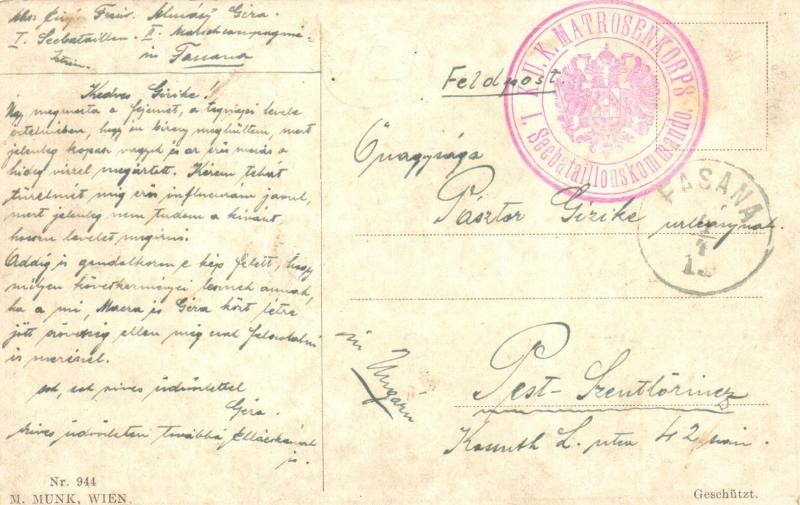 Géza
I. Seebataillon II. Marschkompagnie
in Fasana
Kedves Gizike!
úgy megmosta a fejemet, a tegnapi levele
értelmében, hogy én meghűltem, mert
jelenleg kopasz vagyok és az erős mosás a
hideg vízzel megártott. Kérem tehát
türelmét míg erős influenzám javul,
mert jelenleg nem tudom a kívánt
hosszu levelet megírni.
Addig is gondolkozom e kép felett, hogy
milyen következményei lesznek annak,
ha a mi, és Géza közt létre
jött szövetség ellen még csak
is
sok, sok szives üdvözlettel
Géza.
szives üdvözletem továbbá
is.
Nr. 944
M. MUNK, WIEN.
Feldpost.
K.U.K. MATROSENKORPS
I. Seebataillonskommando.
FASANA
Őnagysága
Pásztor Gizike urleánynak
in Ungarn
Pest-Szentlőrincz
Kossuth L. utca 42 szám.
Geschützt.